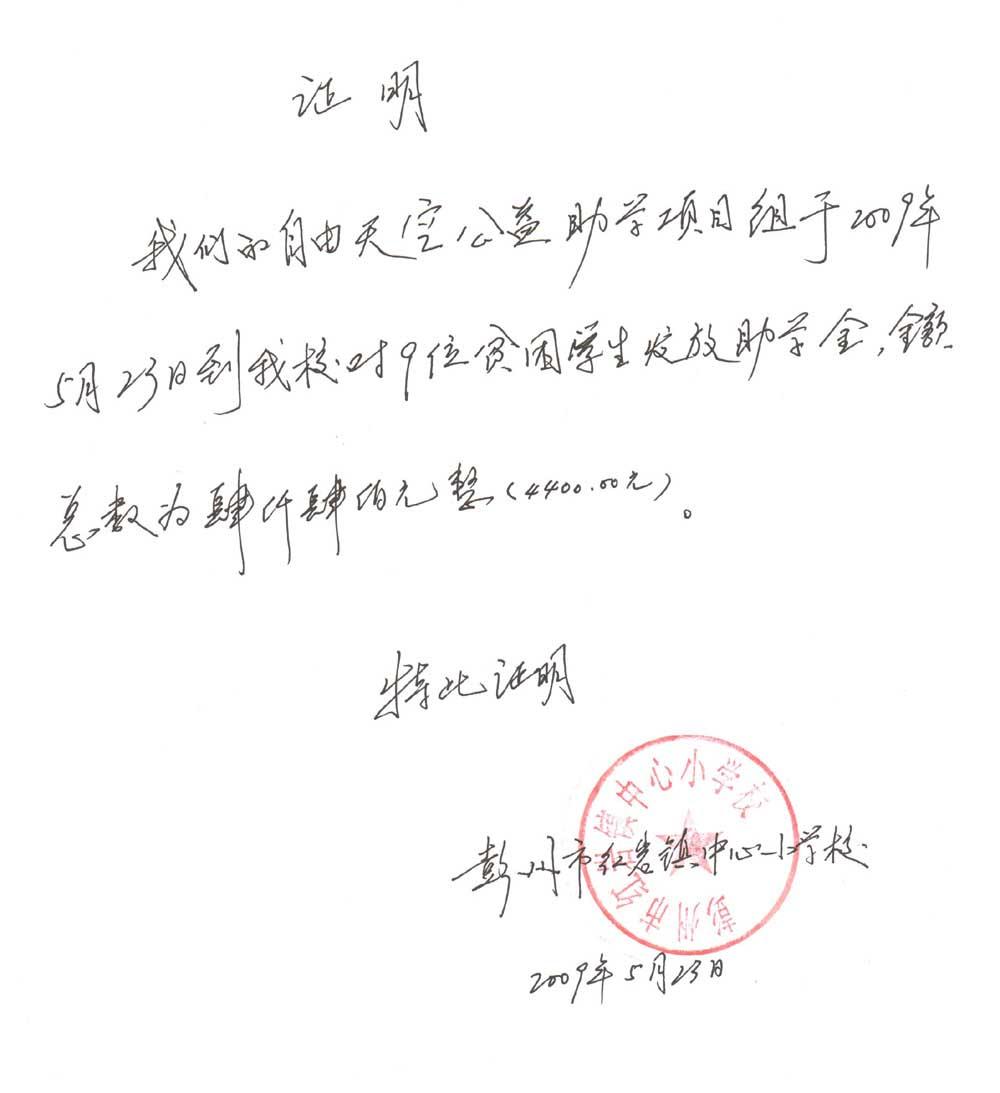 证明
我们的自由天空公益助学项目组于2009年
5月23日到我校对9位贫困学生发放助学金,金额
总数为肆仟肆佰元整(4400.00元)。
特此证明
彭州市红岩镇中心小学校
彭州市红岩镇中心小学校
2009年5月23日